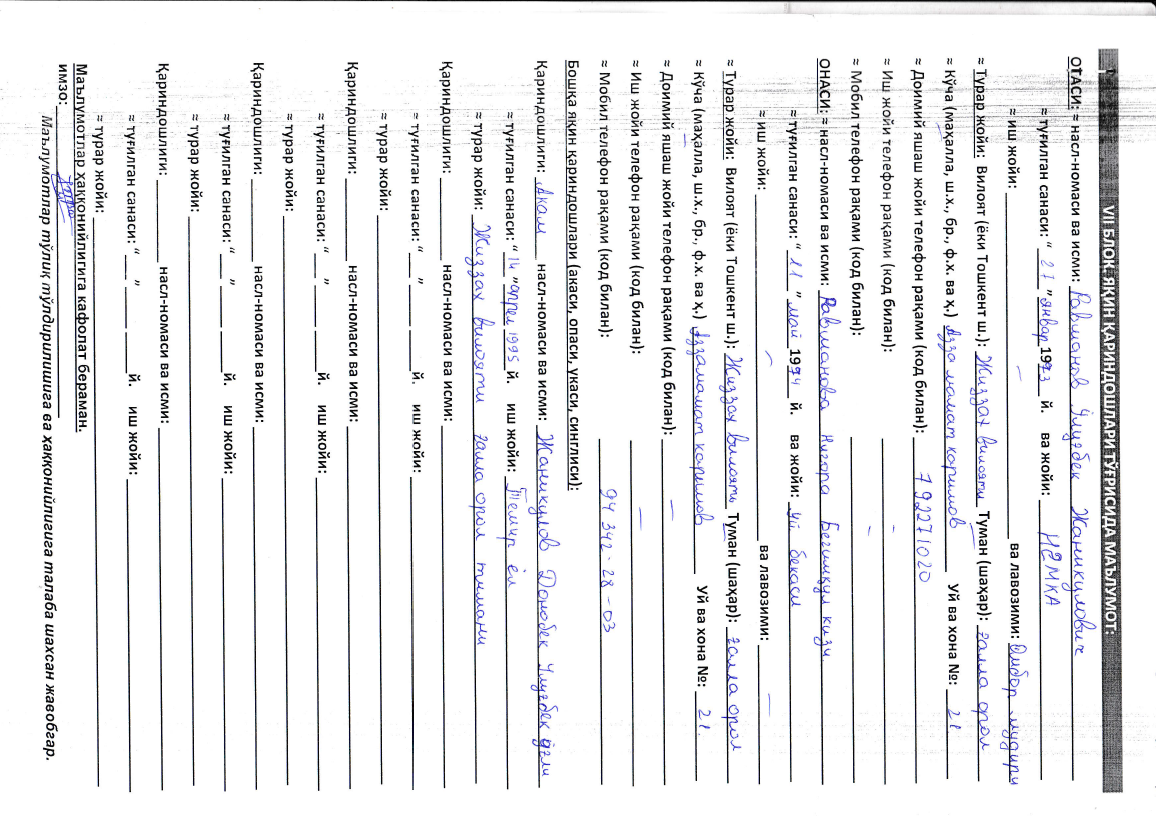 VII БЛОК. ЯҚИН ҚАРИНДОШЛАРИ ТЎҒРИСИДА МАЪЛУМОТ:
ОТАСИ: ≈ насл-номаси ва исми: Равшанов Улуғбек Жаникулович
≈ туғилган санаси: “ 27 ” январ 1973 й. ва жойи:
≈ иш жойи: — ва лавозими: Омбор мудири
≈ Турар жойи: Вилоят (ёки Тошкент ш.): Жиззах вилояти Туман (шаҳар): ғалла орол
≈ Кўча (маҳалла, ш.х., бр., ф.х. ва ҳ.) Аззамат каримов Уй ва хона №: 21.
≈ Доимий яшаш жойи телефон рақами (код билан): 792271020
≈ Иш жойи телефон рақами (код билан): -
≈ Мобил телефон рақами (код билан): -
ОНАСИ: ≈ насл-номаси ва исми: Равшанова Нигора Бегимқул кизи
≈ туғилган санаси: “ 11 ” май 1974 й. ва жойи: Уй бекаси
≈ иш жойи: — ва лавозими: —
≈ Турар жойи: Вилоят (ёки Тошкент ш.): Жиззах вилояти Туман (шаҳар): ғалла орол
≈ Кўча (маҳалла, ш.х., бр., ф.х. ва ҳ.) Аззамат каримов Уй ва хона №: 21.
≈ Доимий яшаш жойи телефон рақами (код билан): —
≈ Иш жойи телефон рақами (код билан): —
≈ Мобил телефон рақами (код билан): 94 342-28-03
Бошқа яқин қариндошлари (акаси, опаси, укаси, синглиси):
Қариндошлиги: Акам насл-номаси ва исми: Жаникулов Донобек Улуғбек ўғли
≈ туғилган санаси: “ 14 ” апрел 1995 й. иш жойи: Темир ёл
≈ турар жойи: Жиззах вилояти ғалла орол тумани
Қариндошлиги: насл-номаси ва исми:
≈ туғилган санаси: “ ” й. иш жойи:
≈ турар жойи:
Қариндошлиги: насл-номаси ва исми:
≈ туғилган санаси: “ ” й. иш жойи:
≈ турар жойи:
Қариндошлиги: насл-номаси ва исми:
≈ туғилган санаси: “ ” й. иш жойи:
≈ турар жойи:
Қариндошлиги: насл-номаси ва исми:
≈ туғилган санаси: “ ” й. иш жойи:
≈ турар жойи:
Маълумотлар ҳаққонийлигига кафолат бераман.
имзо:
Маълумотлар тўлиқ тўлдирилишига ва ҳаққонийлигига талаба шахсан жавобгар.